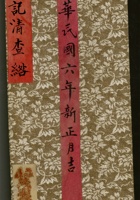 華民國六年新正月吉
記清查絡